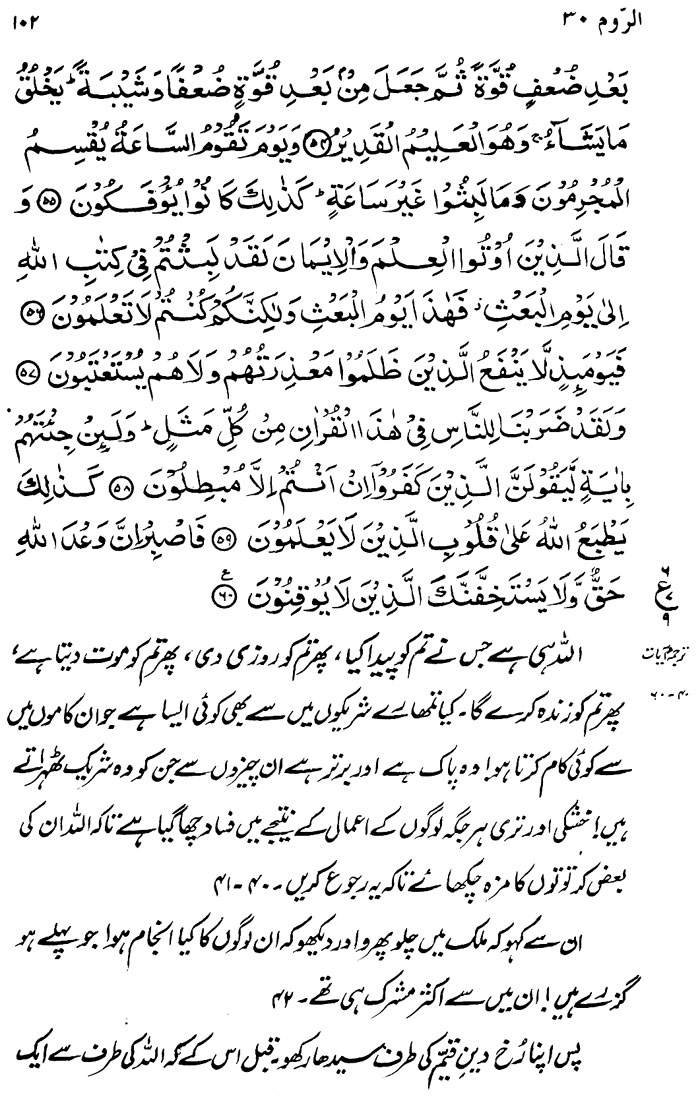 الرّوم ۳۰
۱۰۲
بَعْدِ ضُعْفٍ قُوَّةً ثُمَّ جَعَلَ مِنْۢ بَعْدِ قُوَّةٍ ضُعْفًا وَّشَيْبَةً ؕ يَخْلُقُ
مَا يَشَآءُ ۚ وَهُوَ الْعَلِيْمُ الْقَدِيْرُ ﴿۵۴﴾ وَيَوْمَ تَقُوْمُ السَّاعَةُ يُقْسِمُ
الْمُجْرِمُوْنَ ۙ مَا لَبِثُوْا غَيْرَ سَاعَةٍ ؕ كَذٰلِكَ كَانُوْا يُؤْفَكُوْنَ ﴿۵۵﴾ وَ
قَالَ الَّذِيْنَ اُوْتُوا الْعِلْمَ وَالْاِيْمَانَ لَقَدْ لَبِثْتُمْ فِيْ كِتٰبِ اللّٰهِ
اِلٰى يَوْمِ الْبَعْثِ ۫ فَهٰذَا يَوْمُ الْبَعْثِ وَلٰكِنَّكُمْ كُنْتُمْ لَا تَعْلَمُوْنَ ﴿۵۶﴾
فَيَوْمَئِذٍ لَّا يَنْفَعُ الَّذِيْنَ ظَلَمُوْا مَعْذِرَتُهُمْ وَلَا هُمْ يُسْتَعْتَبُوْنَ ﴿۵۷﴾
وَلَقَدْ ضَرَبْنَا لِلنَّاسِ فِيْ هٰذَا الْقُرْاٰنِ مِنْ كُلِّ مَثَلٍ ؕ وَلَئِنْ جِئْتَهُمْ
بِاٰيَةٍ لَّيَقُوْلَنَّ الَّذِيْنَ كَفَرُوْۤا اِنْ اَنْتُمْ اِلَّا مُبْطِلُوْنَ ﴿۵۸﴾ كَذٰلِكَ
يَطْبَعُ اللّٰهُ عَلٰى قُلُوْبِ الَّذِيْنَ لَا يَعْلَمُوْنَ ﴿۵۹﴾ فَاصْبِرْ اِنَّ وَعْدَ اللّٰهِ
حَقٌّ وَّلَا يَسْتَخِفَّنَّكَ الَّذِيْنَ لَا يُوْقِنُوْنَ ﴿۶۰﴾
۶
ع ۷
۹
ترجمۂ آیات
۴۰-۶۰
اللہ ہی ہے جس نے تم کو پیدا کیا، پھر تم کو روزی دی، پھر تم کو موت دیتا ہے،
پھر تم کو زندہ کرے گا۔ کیا تمھارے شریکوں میں سے بھی کوئی ایسا ہے جو ان کاموں میں
سے کوئی کام کرتا ہو! وہ پاک ہے اور برتر ہے ان چیزوں سے جن کو وہ شریک ٹھہراتے
ہیں! خشکی اور تری ہر جگہ لوگوں کے اعمال کے نتیجے میں فساد چھا گیا ہے تاکہ اللہ ان کی
بعض کرتوتوں کا مزہ چکھائے تاکہ یہ رجوع کریں۔ ۴۰-۴۱
ان سے کہو کہ ملک میں چلو پھرو اور دیکھو کہ ان لوگوں کا کیا انجام ہوا جو پہلے ہو
گزرے ہیں! ان میں سے اکثر مشرک ہی تھے۔ ۴۲
پس اپنا رُخ دینِ قیّم کی طرف سیدھا رکھو قبل اس کے کہ اللہ کی طرف سے ایک